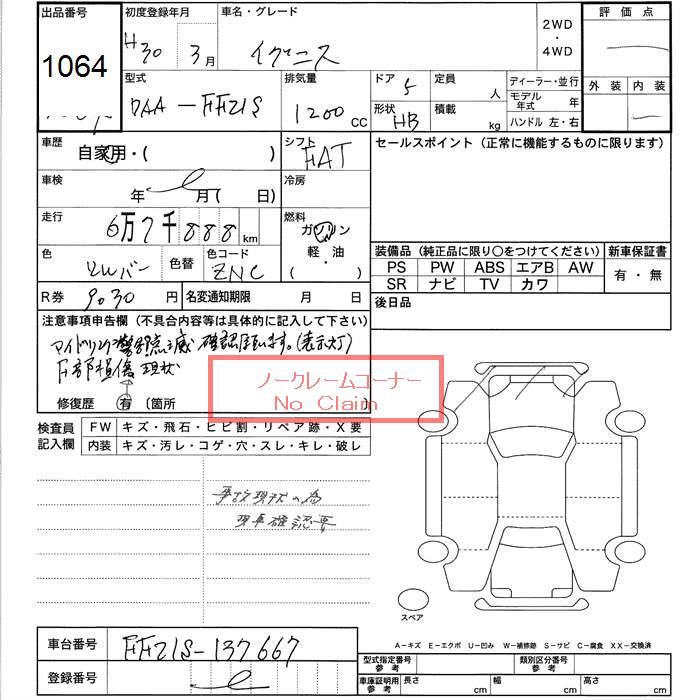 出品番号 初度登録年月 車名・グレード 2WD・4WD 評価点
1064 H30 3月 イグニス
外装 内装
型式 排気量 ドア 定員 ディーラー・並行
DAA-FF21S 1200 CC 5 人 モデル年式 年
形状 積載
HB kg ハンドル 左・右
車歴 シフト セールスポイント(正常に機能するものに限ります)
自家用・( ) FAT
車検 冷房
年 月( 日)
走行 燃料
6万7千888km ガソリン
軽・油
( )
色 色替 色コード
シルバー ZNC
装備品(純正品に限り○をつけてください) 新車保証書
PS PW ABS エアB AW 有・無
SR ナビ TV カワ
R券 9030円 名変通知期限 月 日 後日品
注意事項申告欄(不具合内容等は具体的に記入して下さい)
アイドリング 点滅 確認願います。(表示灯)
損傷 現状
修復歴 有 (箇所
ノークレームコーナー
No Claim
検査員記入欄 FW キズ・飛石・ヒビ割・リペア跡・X要
内装 キズ・汚レ・コゲ・穴・スレ・キレ・破レ
事故現状の為
現車確認要
スペア
A-キズ E-エクボ U-凹み W-補修跡 S-サビ C-腐食 XX-交換済
車台番号 FF21S-137667
型式指定番号 参考 類別区分番号 参考
登録番号
車庫証明用 参考 長さ cm 幅 cm 高さ cm